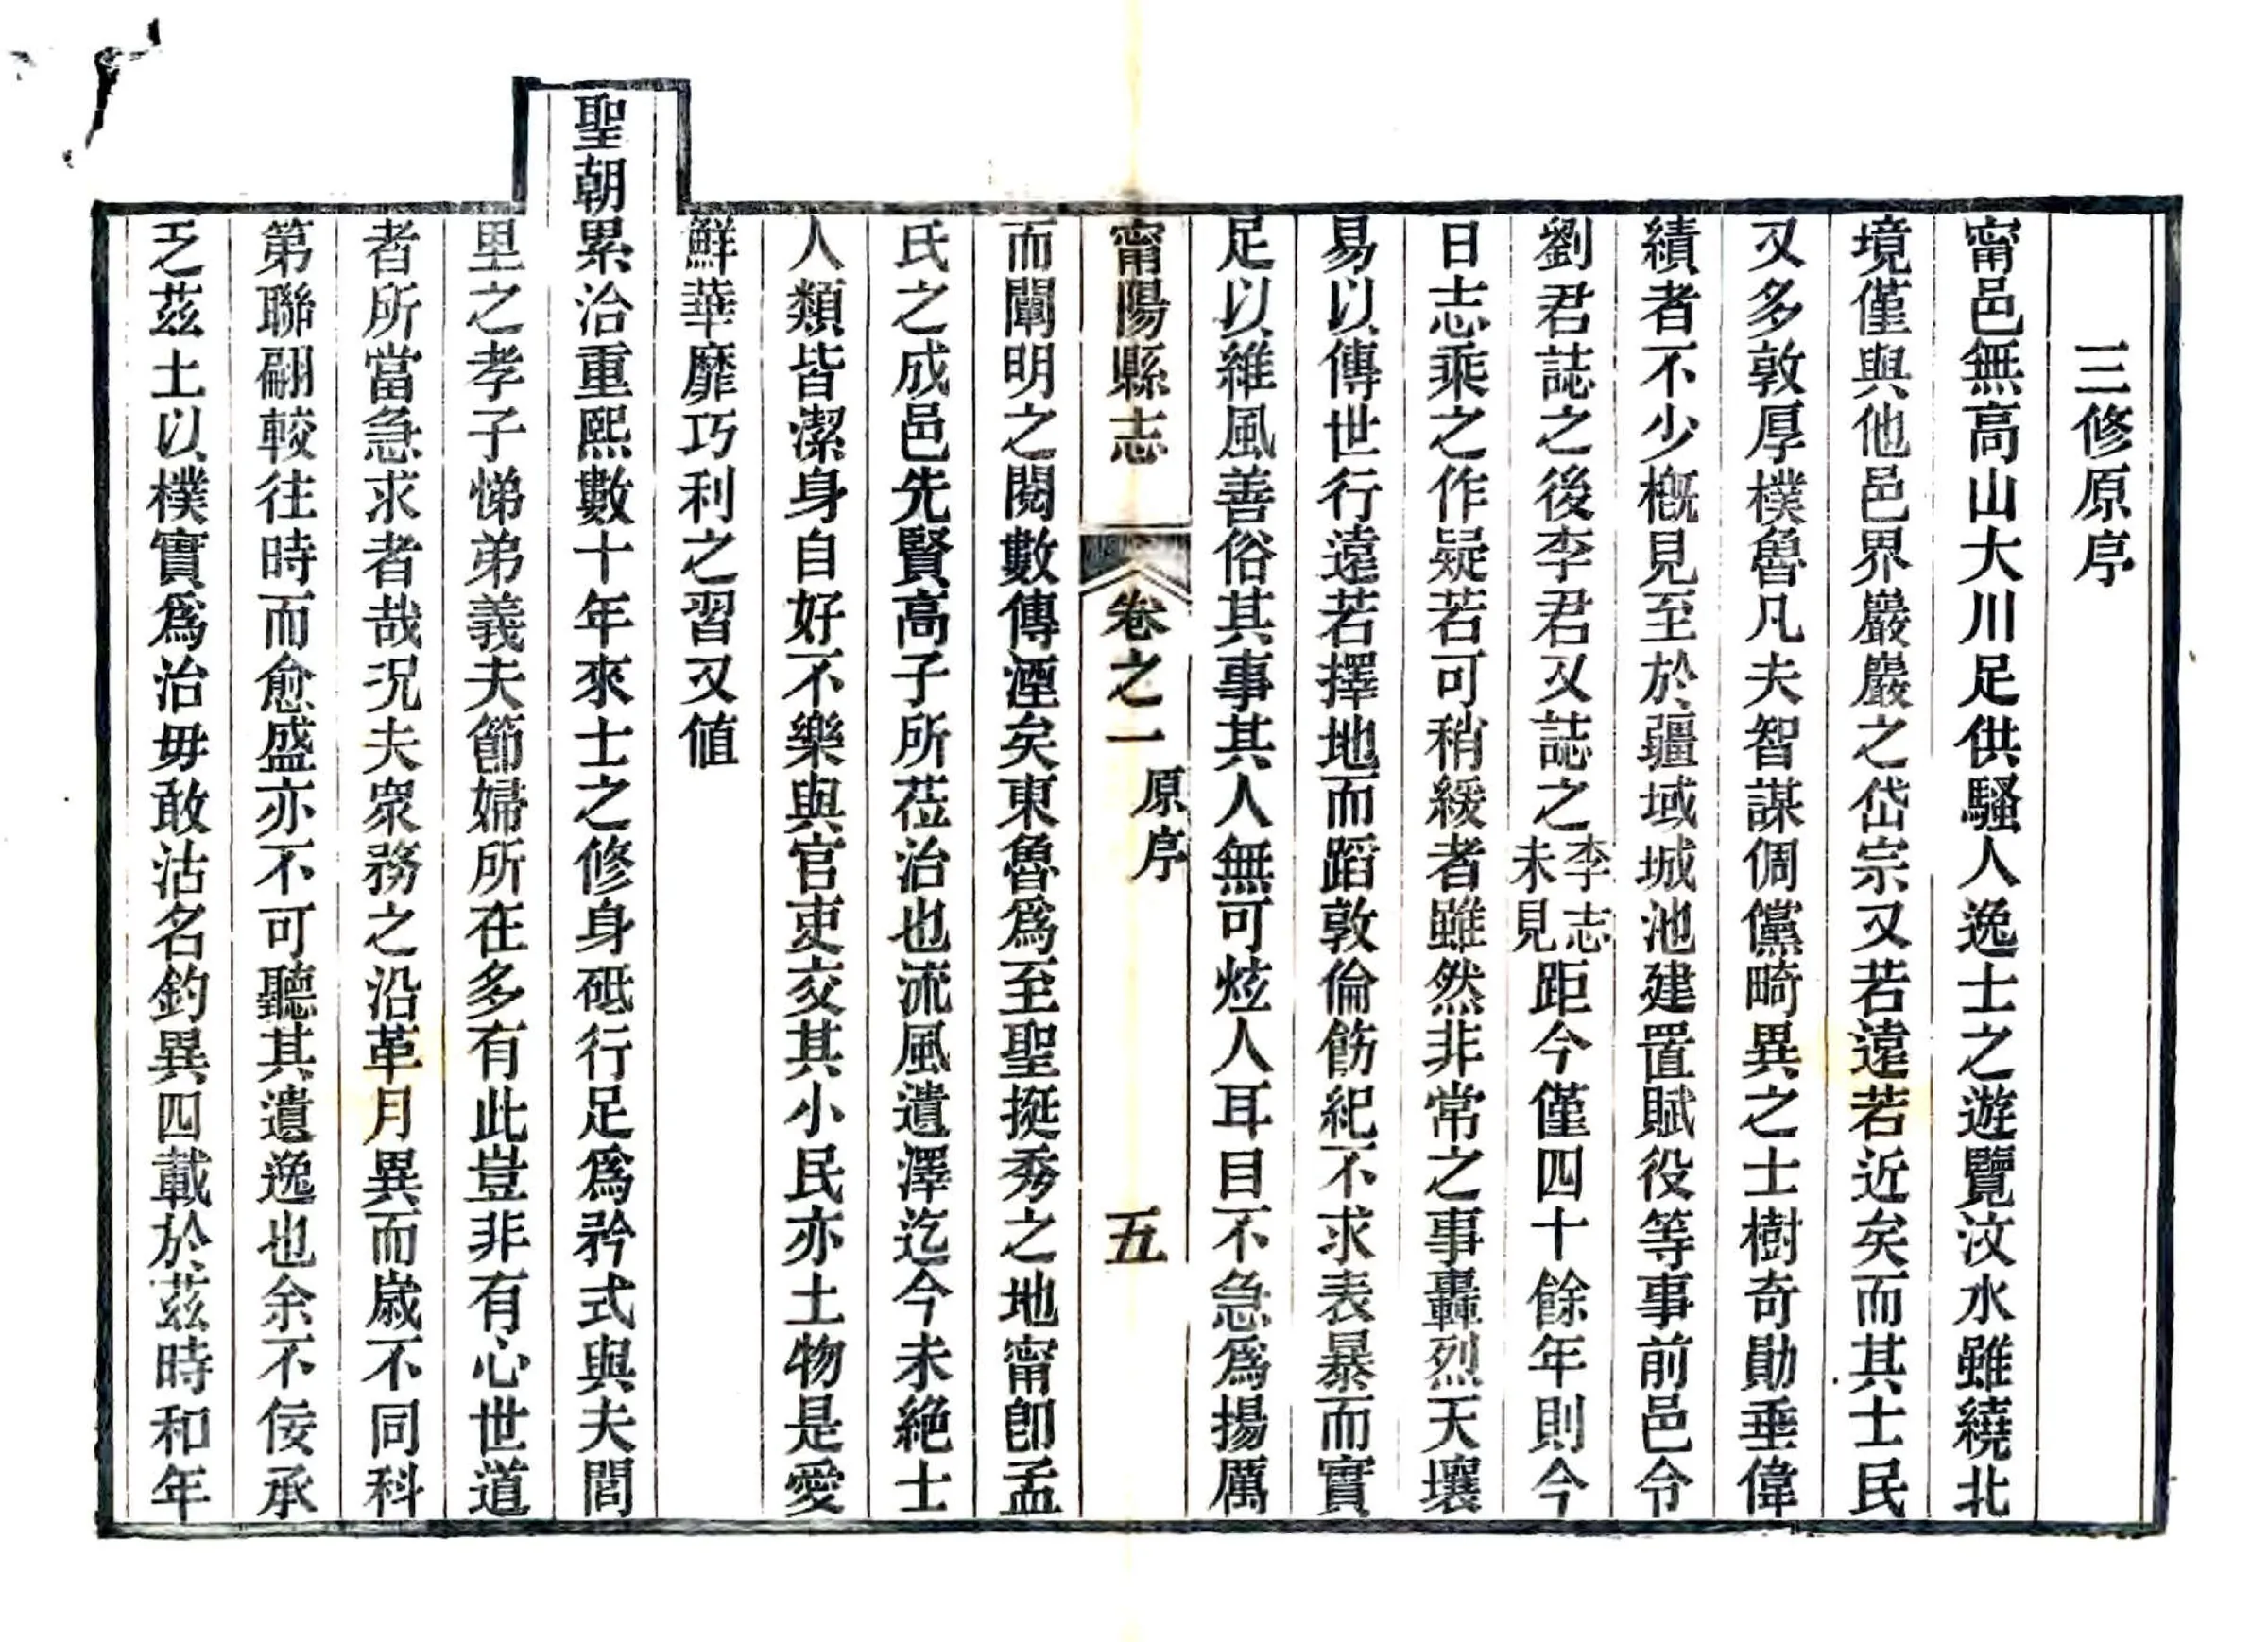 三修原序
甯邑無高山大川足供騷人逸士之遊覽汶水雖繞北
境僅與他邑界巖巖之岱宗又若遠若近矣而其士民
又多敦厚樸魯凡夫智謀倜儻畸異之士樹奇勛垂偉
績者不少槪見至於疆域城池建置賦役等事前邑令
劉君誌之後李君又誌之李志未見距今僅四十餘年則今
日志乘之作疑若可稍緩者雖然非常之事轟烈天壤
易以傳世行遠若擇地而蹈敦倫飭紀不求表暴而實
足以維風善俗其事其人無可炫人耳目不急爲揚厲
甯陽縣志 卷之一 原序 五
而闡明之閱數傳湮矣東魯爲至聖挺秀之地甯卽孟
氏之成邑先賢高子所莅治也流風遺澤迄今未絕士
人類皆潔身自好不樂與官吏交其小民亦土物是愛
鮮華靡巧利之習又値
聖朝累治重熙數十年來士之修身砥行足爲矜式與夫閭
里之孝子悌弟義夫節婦所在多有此豈非有心世道
者所當急求者哉況夫衆務之沿革月異而歲不同科
第聯翩較往時而愈盛亦不可聽其遺逸也余不佞承
乏茲土以樸實爲治毋敢沽名釣異四載於茲時和年